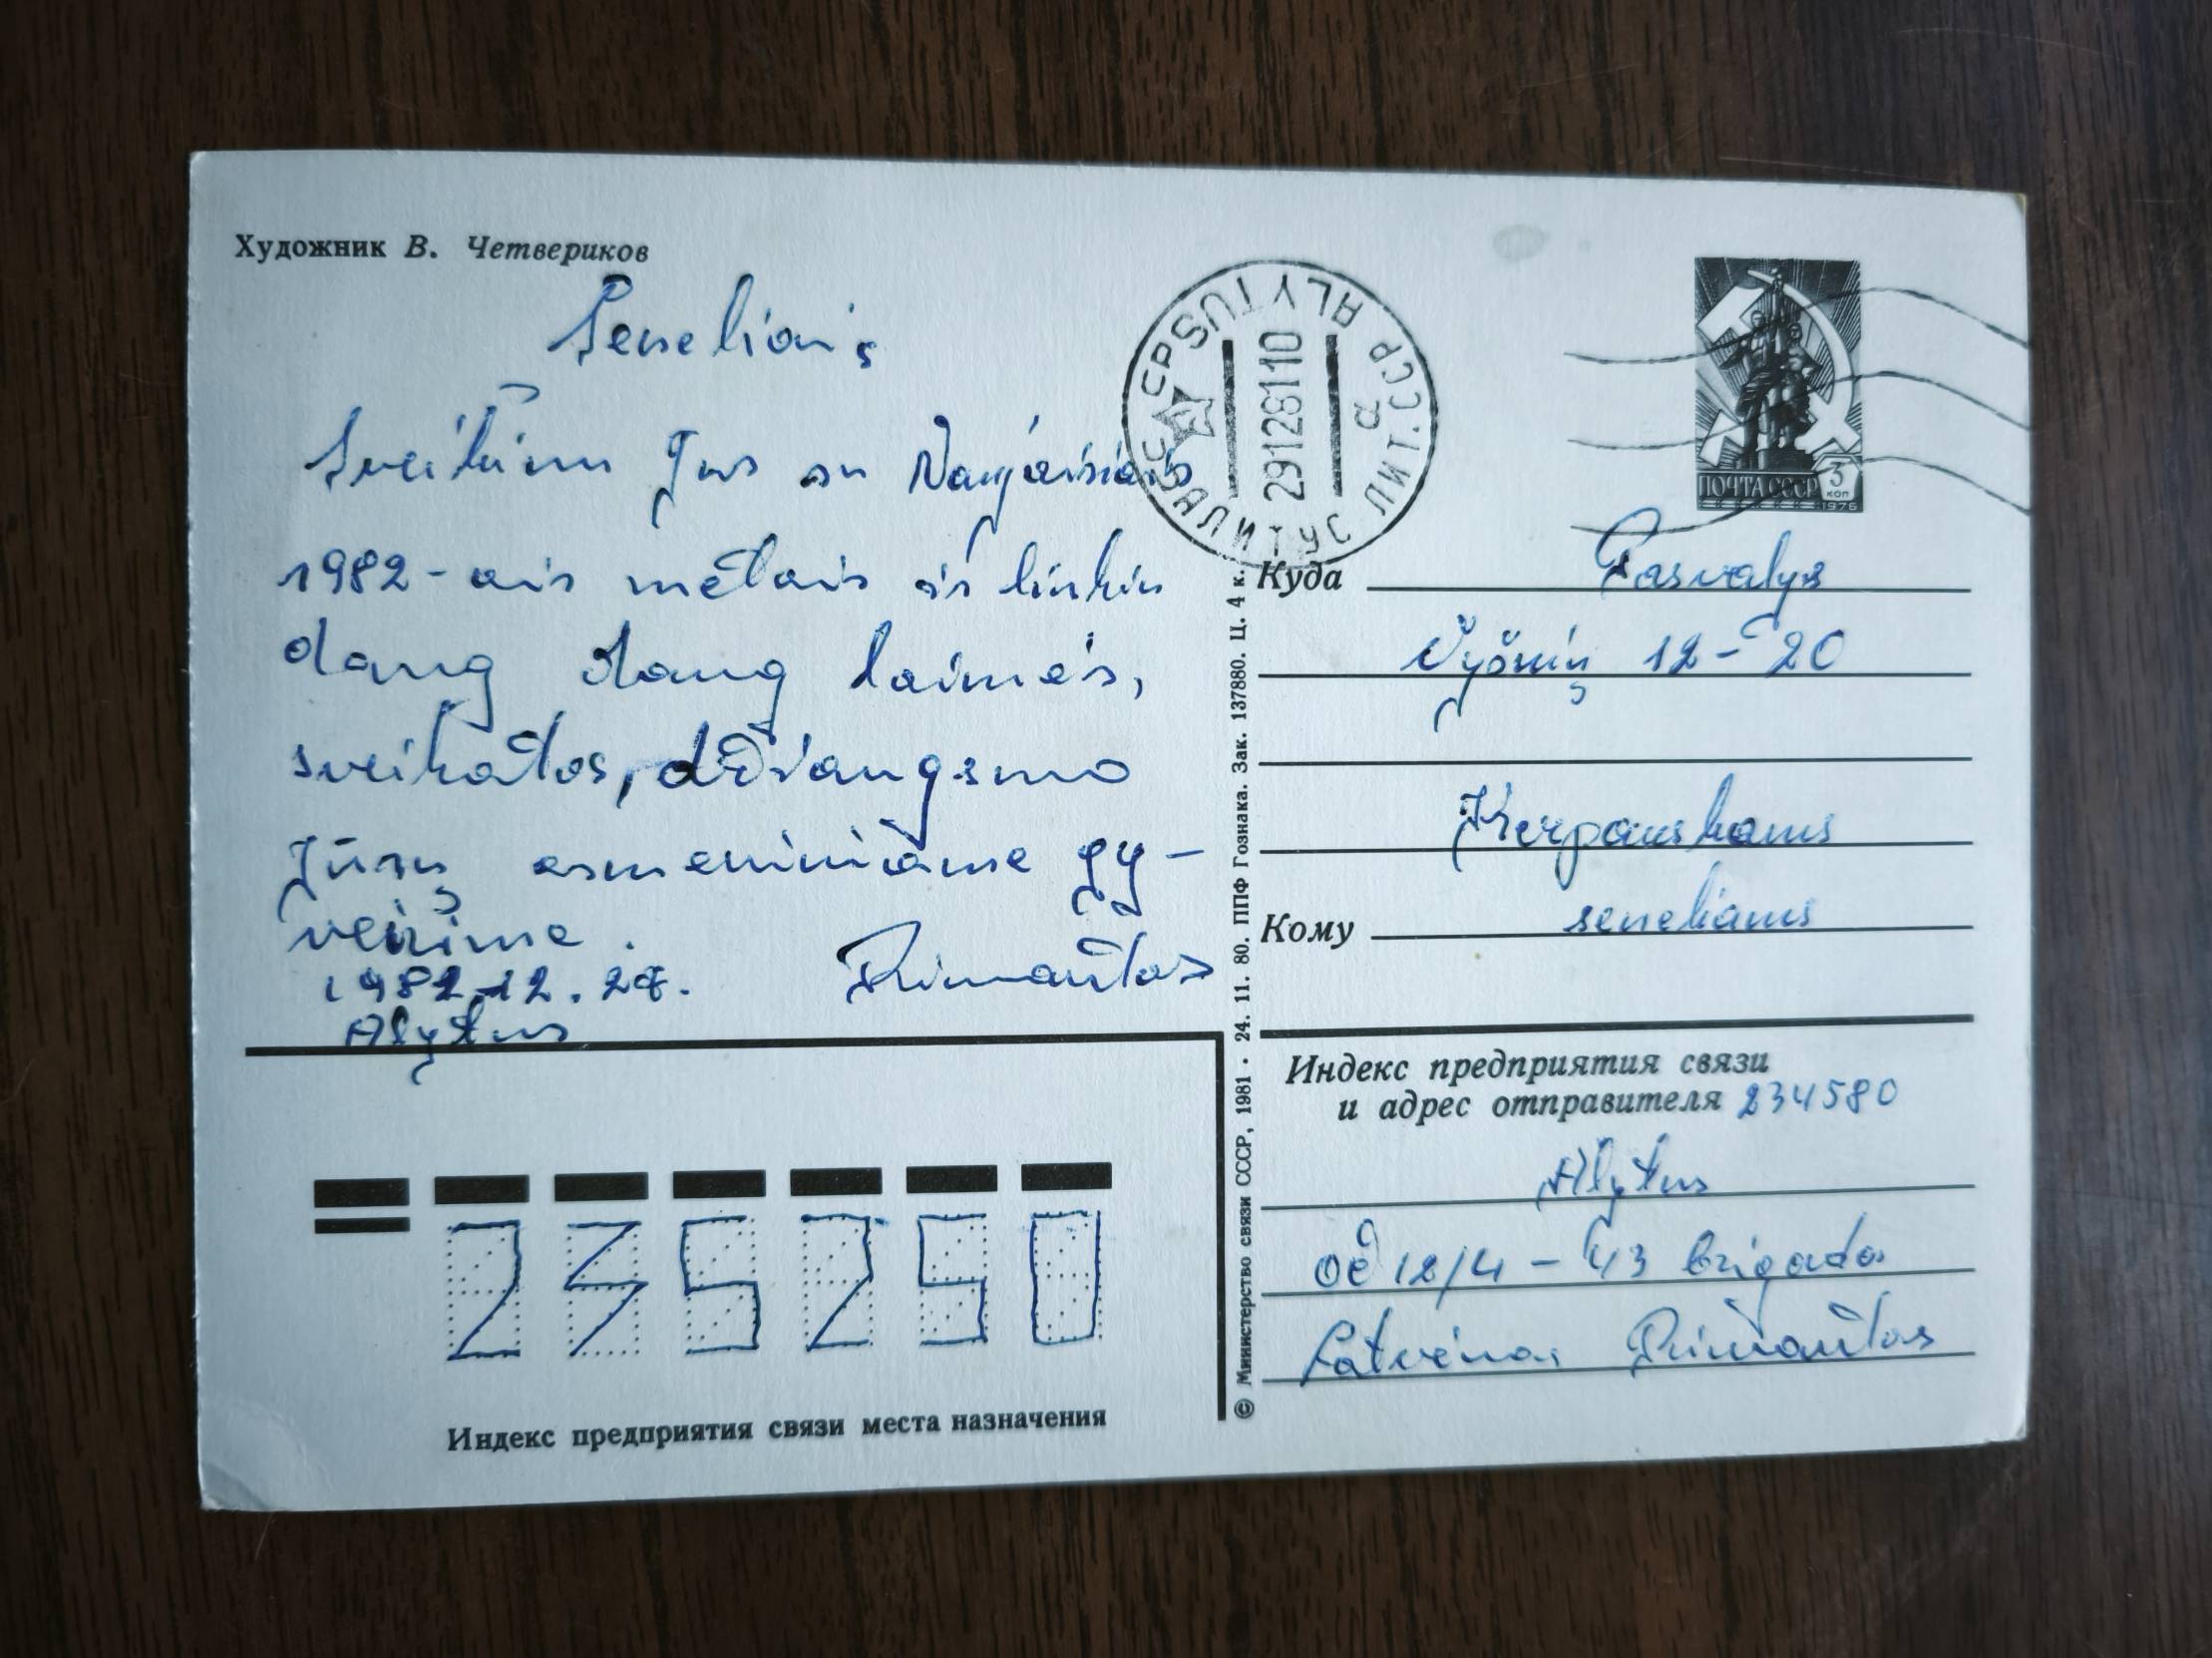 Художник В. Четвериков
Seneliais
Sveikinu Jus su Naujaisiais
1982-ais metais ir linkiu
daug daug laimės,
sveikatos, džiaugsmo
Jūsų asmeniniame gy-
venime.
Rimantas
Alytus
ALYTUS
29128110
а
АЛИТУС ЛИТ.ССР
ПОЧТА СССР
3
КОП
1976
Куда Pasvalys
Vyšnių 12-20
seneliams
Кому
Индекс предприятия связи
и адрес отправителя 234580
Alytus
12/4 - 43 brigada
Rimantas
235250
Индекс предприятия связи места назначения
© Министерство связи СССР, 1981. 24. 11. 80. ППФ Гознака. Зак. 137880. Ц. 4 к.